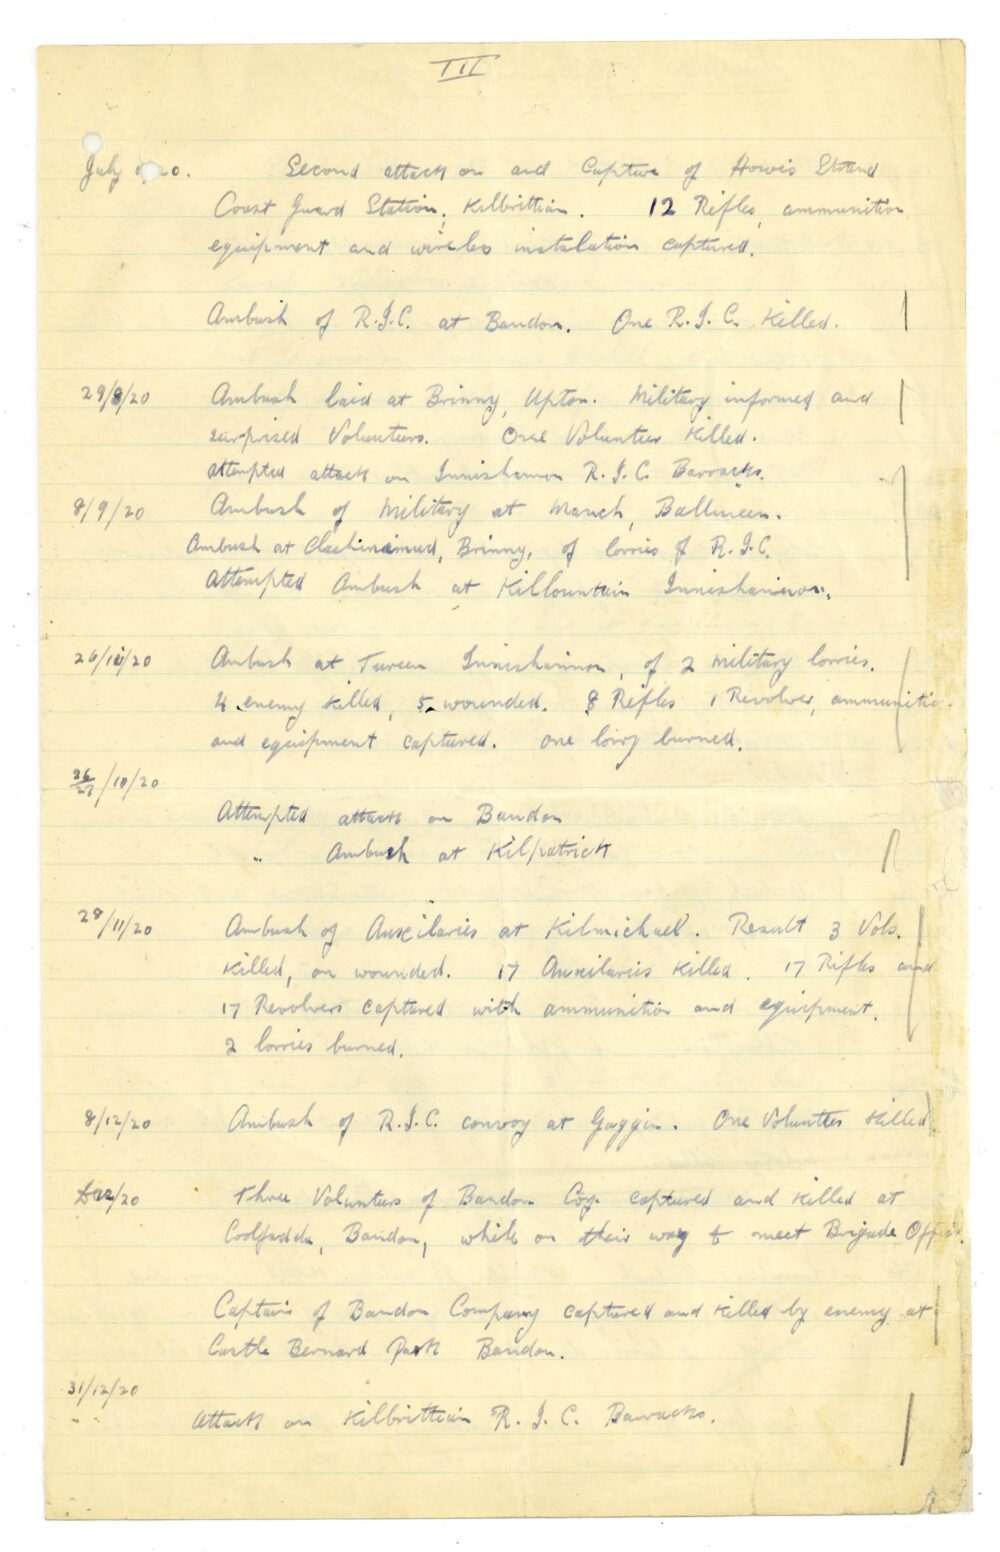 III
July 20. Second attack on and Capture of Howis Strand
Coast Guard Station, Kilbrittian. 12 Rifles, ammunition
equipment and wireless instalation captured.
Ambush of R.I.C. at Bandon. One R.I.C. Killed.
29/8/20 Ambush laid at Brinny, Upton. Military informed and
surprised Volunteers. One Volunteer Killed.
Attempted attack on Innishannon R.I.C. Barracks.
8/9/20 Ambush of Military at Manch, Ballineen.
Ambush at Brinny, of lorries of R.I.C.
Attempted Ambush at Killountain Innishannon.
26/10/20 Ambush at Tureen Innishannon, of 2 Military lorries.
4 enemy killed, 5 wounded. 8 Rifles 1 Revolver, ammunitio
and equipment captured. One lorry burned.
26/27/10/20
Attempted attack on Bandon
" Ambush at Kilpatrick
28/11/20 Ambush of Auxilaries at Kilmichael. Result 3 Vols.
Killed, or wounded. 17 Auxilaries Killed. 17 Rifles and
17 Revolvers captured with ammunition and equipment.
2 lorries burned.
8/12/20 Ambush of R.I.C. convoy at Gaggin. One Volunteer Killed
/20 Three Volunteers of Bandon Coy. captured and killed at
Coolfadda, Bandon, while on their way to meet Brigade
Captain of Bandon Company captured and killed by enemy at
Castle Bernard Park Bandon.
31/12/20
" " Attack on Kilbrittian R.I.C. Barracks.